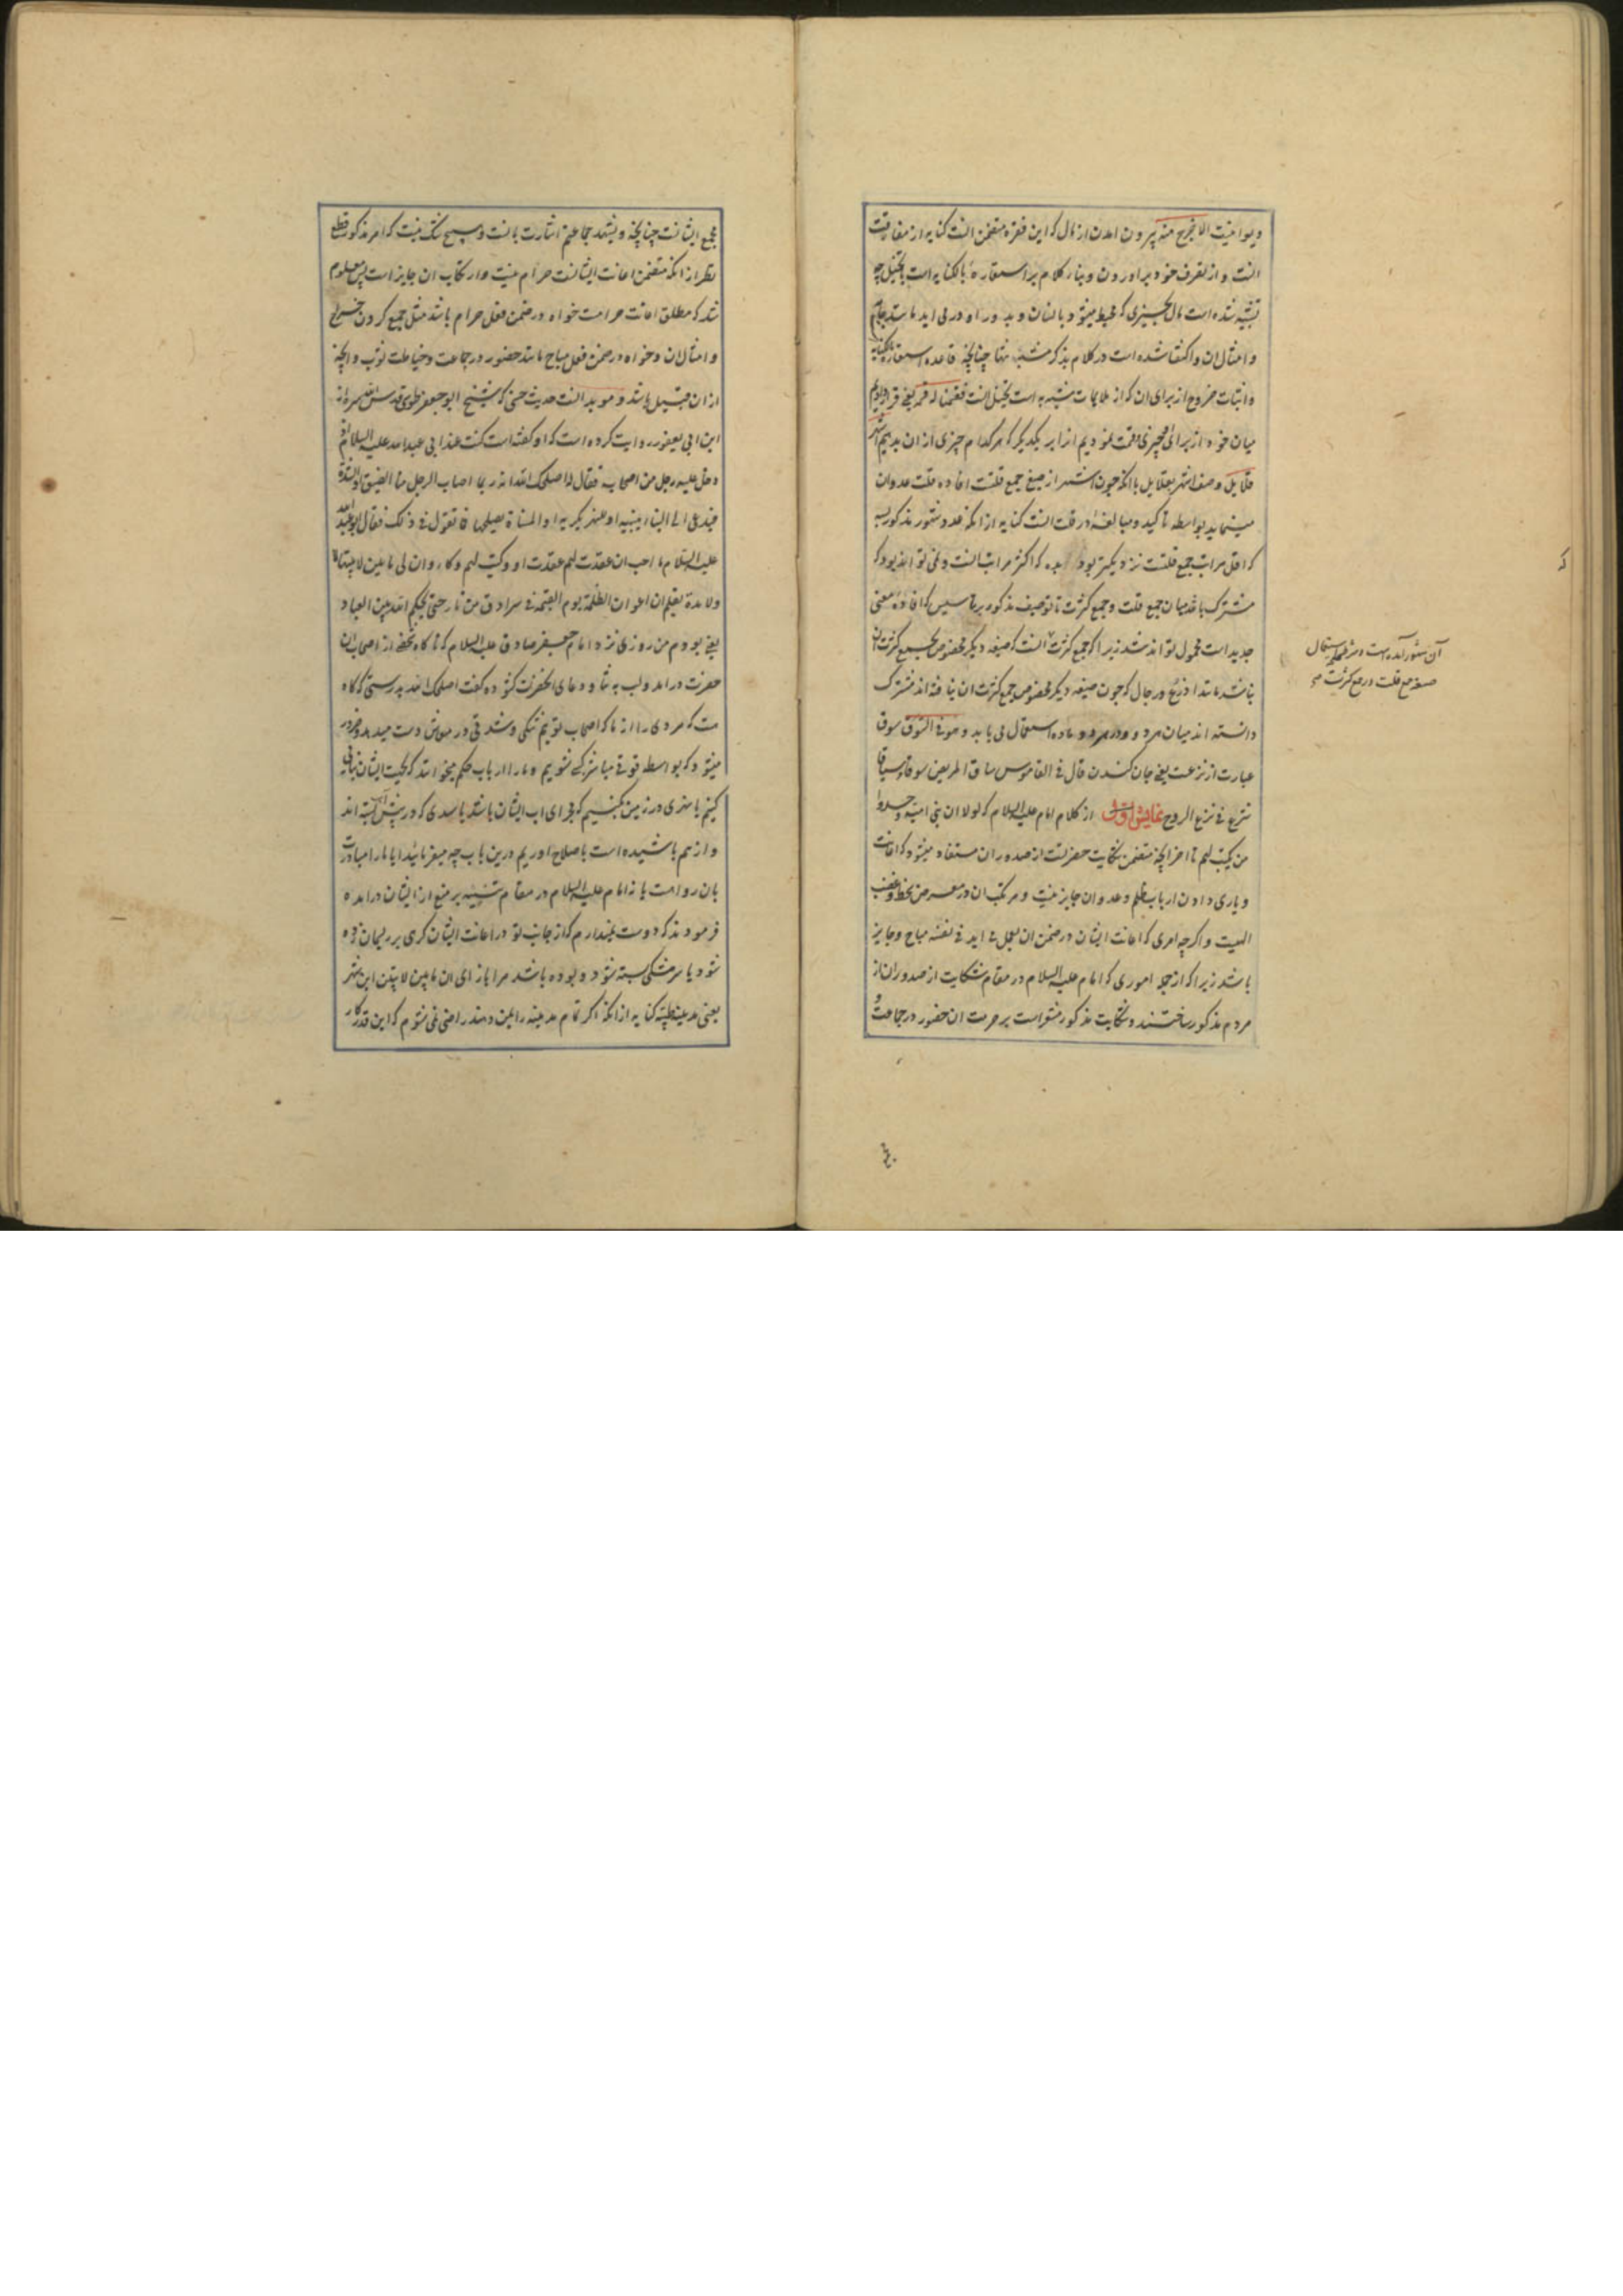 دیوان نیست الا فخرج منه بیرون امدن از مال که این فقره متضمن انست کنایه از مفارقت
انست و از تصرف خود براوردن و بناء کلام بر استعاره بالکنایه است بتخییل چه
تشبیه شده است مال بچیزی که محیط میشود بانسان و بدور او درمی اید مانند جامه
و امثال ان و اکتفا شده است در کلام بذکر مشبه تنها چنانچه قاعده استعاره بالکنایه
و اثبات خروج از برای ان که از ملایمات مشبه به است تخییل انست فقسمنا له قسمة یعنی قرار دادیم
میان خود از برای او چیزی و قسمت نمودیم انرا بر یکدیگر که هر کدام چیزی از ان بدهیم اشهر
قلایل وصف اشهر بقلایل با انکه چون اشهر از صیغ جمع قلتست افاده قلت عدد ان
مینماید بواسطه تاکید و مبالغه در قلت انست کنایه از انکه عدد شهور مذکور بسه
که اقل مراتب جمع قلتست نزدیکتر بود که اکثر مراتب انست و می تواند بود که
مشترک باشد میان جمع قلت و جمع کثرت تا توصیف مذکور بر تاسیس که افاده معنی
جدید است محمول تواند شد زیرا که جمع کثرت انست که صیغه دیگر مخصوص بجمع کثرت ان
نباشد مانند اذرع و رجال که چون صیغه دیگر مخصوص جمع کثرت ان نیافته اند مشترک
دانسته اند میان هر دو و در هر دو ماده استعمال می یابد و هو فی السوق سوق
عبارت از نزعست یعنی جان کندن قال فی القاموس ساق المریض سوقا و سیاقا
شرع فی نزع الروح نمایش اول از کلام امام علیه السلام که لولا ان بنی امیه وجدوا
من یکتب لهم تا اخر انچه متضمن شکایت حضرتست از صدور ان مستفاد میشود که اعانت
و یاری دادن ارباب ظلم و عدوان جایز نیست و مرتکب ان در معرض سخط و غضب
الهیست و اگرچه امری که اعانت ایشان در ضمن ان بعمل می اید فی نفسه مباح و جایز
باشد زیرا که از جمله اموری که امام علیه السلام در مقام شکایت از صدور ان از
مردم مذکور ساختند و شکایت مذکور مشعر است بر حرمت ان حضور در جماعت و
آن شهور آمده است و مشهور استعمال
صیغه جمع قلت در جمع کثرت
مجمع ایشانست چنانچه و یشهد جماعتهم اشارت بانست و هیچ شک نیست که امر مذکور قطع
نظر از انکه متضمن اعانت ایشانست حرام نیست و ارتکاب ان جایز است پس معلوم
شد که مطلق اعانت حرامست خواه در ضمن فعل حرام باشد مثل جمع کردن خراج
و امثال ان و خواه در ضمن فعل مباح مانند حضور در جماعت و خیاطت ثوب و انچه
از ان قبیل باشد و موید انست حدیث حسنی که شیخ ابو جعفر طوسی قدس الله سره از
ابن ابی یعفور روایت کرده است که او گفته است کنت عند ابی عبدالله علیه السلام اذ
دخل علیه رجل من اصحابه فقال له اصلحک الله انه ربما اصاب الرجل منا الضیق او الشدة
فیدعی الی البناء یبنیه او النهر یکریه او المسناة یصلحها فما تقول فی ذلک فقال ابو عبدالله
علیه السلام ما احب ان عقدت لهم عقدة او وکیت لهم وکاء و ان لی ما بین لابتیها لا
ولا مدة بقلم ان اعوان الظلمة یوم القیمة فی سرادق من نار حتی یحکم الله بین العباد
یعنی بودم من روزی نزد امام جعفر صادق علیه السلام که ناگاه شخصی از اصحاب ان
حضرت درامد و لب به ثنا و دعای انحضرت گشوده گفت اصلحک الله بدرستی که گاه
هست که مردی را از ما که اصحاب توییم تنگی و شدتی در معاش دست میدهد و ضرور
میشود که بواسطه قوتی مباشر کسی شویم و ما را ارباب حکم میخوانند که بجهت ایشان بنائی
کنیم یا نهری در زمین بکنیم که مجرای اب ایشان باشد یا سدی که در پیش آب بسته اند
و از هم پاشیده است باصلاح اوریم درین باب چه میفرمایید ایا ما را مبادرت
بان رواست یا نه امام علیه السلام در مقام تنبیه بر منع از ایشان درامده
فرمودند که دوست نمیدارم که از جانب تو در اعانت ایشان گرهی بر ریسمان زده
شود یا سر مشکی بسته شود و بوده باشد مرا بازای ان مابین لابتین این شهر
یعنی مدینه طیبه کنایه از انکه اگر تمام مدینه را بمن دهند راضی نمی شوم که این قدر کار